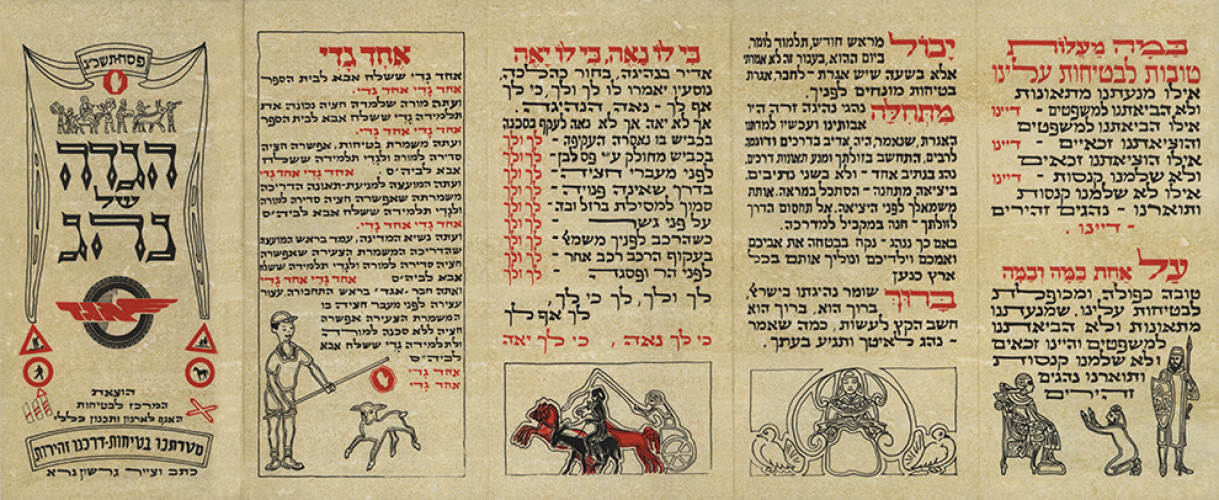 בַּמָּה מַעֲלוֹת
טובות לבטיחות עלינו
אילו מנעתנו מתאונות
ולא הביאתנו למשפטים - דיינו
אילו הביאתנו למשפטים
והוציאתנו זכאיים - דיינו
אילו הוציאתנו זכאים
ולא שלמנו קנסות - דיינו
אילו לא שלמנו קנסות
ותוארנו - נהגים זהירים
- דיינו.
עַל אחת כמה וכמה
טובה כפולה, ומכופלת
לבטיחות עלינו. שמנעתנו
מתאונות ולא הביאתנו
למשפטים והיינו זכאים
ולא שלמנו קנסות
ותוארנו נהגים
זהירים
יָכוֹל מראש חודש, תלמוד לומר,
ביום ההוא, בעבור זה לא אמרתי
אלא בשעה שיש אגרת - לחבר, אגרת
בטיחות מונחים לפניך.
מִתְּחִלָּה נהגי נהיגה זרה היו
אבותינו ועכשיו למדתנו
האגרת, שנאמר, היה אדיב בדרכים ודוגמה
לרבים, התחשב בזולתך ומנע תאונות דרכים.
נהג בנתיב אחד - ולא בשני נתיבים.
ביציאה מתחנה - הסתכל במראה. אותת
משמאלך לפני היציאה. אל תחסום הדרך
לזולתך - חנה במקביל למדרכה.
באם כך ננהג - נקח בבטחה את אביכם
ואמכם וילדיכם ונוליך אותם בכל
ארץ כנען
בָּרוּךְ שומר נהיגתו בישראל
ברוך הוא, ברוך הוא
חשב הקץ לעשות, כמה שאמר
- נהג לאיטך ותגיע בעתך.
כי לו נאה, כי לו יאה
אדיר בנהיגה, בחור כהלכה,
נוסעין יאמרו לו לך ולך, כי לך
אף לך - נאה, הנהיגה.
אך לא יאה אך לא נאה לעקוף בסכנה
בכביש בו נאסרה העקיפה - לך ולך
בכביש מחולק ע"י פס לבן - לך ולך
לפני מעברי חציה - לך ולך
בדרך, שאינה פנויה - לך ולך
סמוך למסילת ברזל ובה - לך ולך
על פני גשר - לך ולך
כשהרכב לפניך משמאל - לך ולך
בעקוף הרכב רכב אחר - לך ולך
לפני הר ופסגה - לך ולך
לך ולך, לך כי לך,
לך אף לך
כי לך נאה, כי לך יאה
אֶחָד גַדִי
אחד גדי ששלח אבא לבית הספר
אחד גדי אחד גדי.
ועתה מורה שלמדה חציה נכונה את
תלמידה גדי ששלח אבא לבית הספר
אחד גדי אחד גדי
ועתה משמרת בטיחות, אפשרה חציה
סדירה למורה ולגדי תלמידה ששלח
אבא לביה"ס - אחד גדי אחד גדי
ועתה המועצה למניעת-תאונה הדריכה
משמרתה שאפשרה חציה סדירה למורה
ולגדי תלמידה ששלח אבא לביה"ס
אחד גדי אחד גדי
ועתה נשיא המדינה, עמד בראש המועצה
שהדריכה המשמרת הצעירה שאפשרה
חציה סדירה למורה ולגדי תלמידה ששלח
אבא לביה"ס אחד גדי אחד גדי
ואתה חבר "אגד" בראש התחבורה, עצור
עצירה לפני מעבר חציה בו
המשמרת הצעירה אפשרה
חציה ללא סכנה למורה
ולתלמידה גדי ששלח אבא
לביה"ס
אחד גדי
אחד גדי
פסח-תשכ"ג
הגדה
של
נהג
אגד
הוצאת
המרכז לבטיחות
האגף לארגון ותכנון כללי
מטרתנו בטיחות-דרכנו זהירות
כתב וצייר גרשון גרא